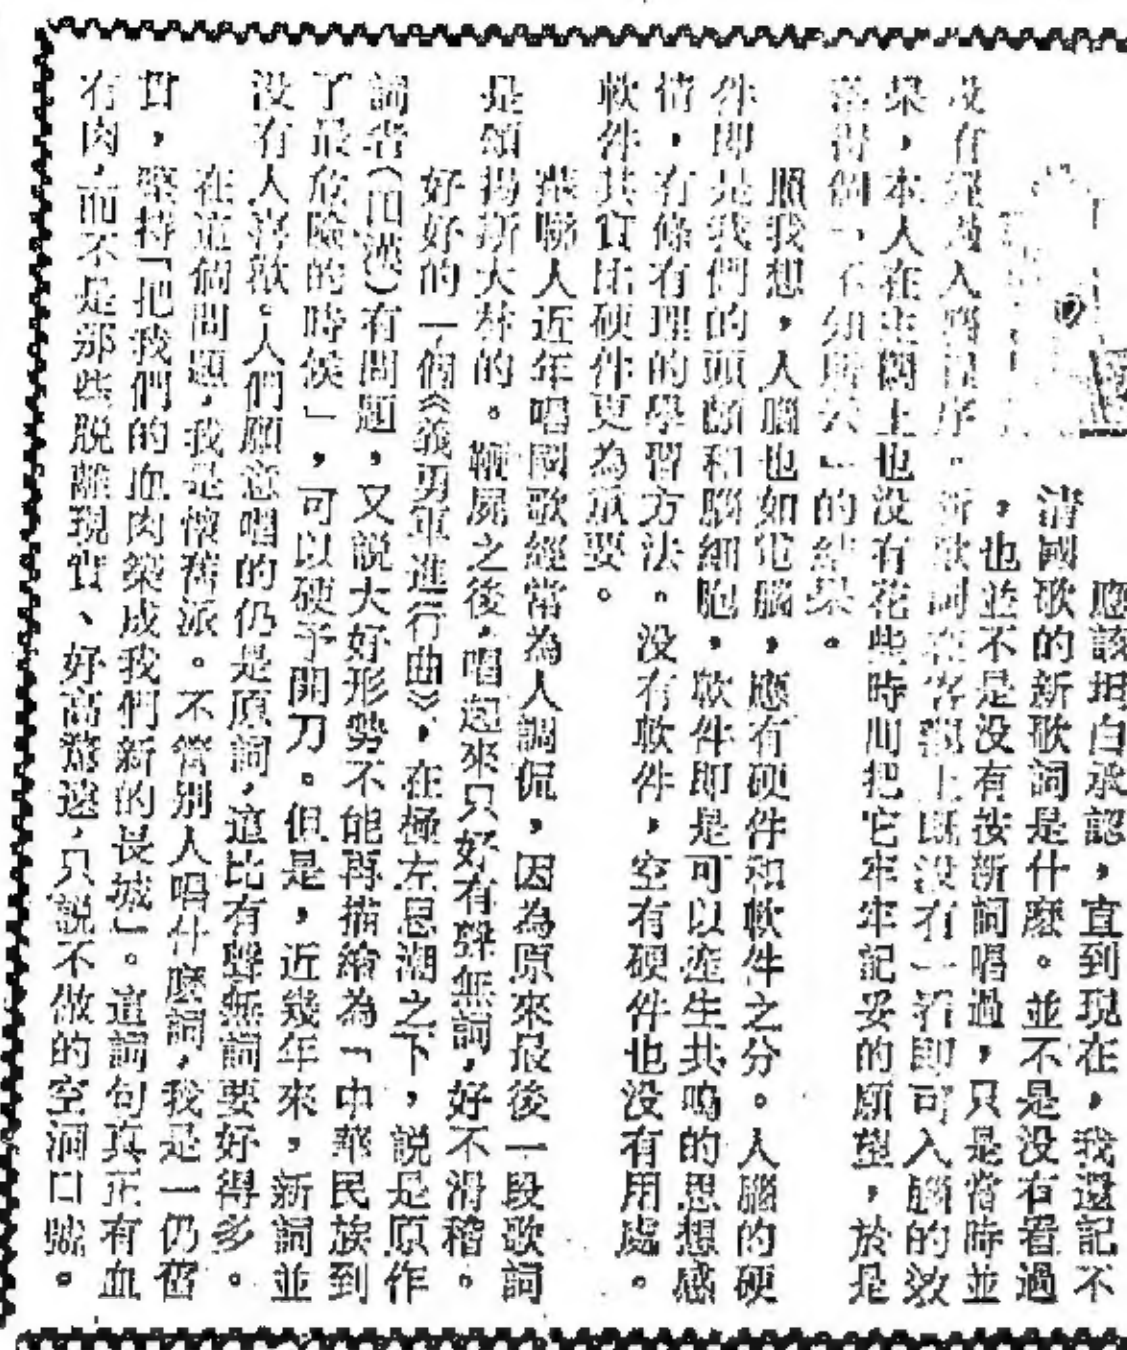 應該坦白承認，直到現在，我還記不
清國歌的新歌詞是什麽。並不是没有看過
，也並不是没有按新詞唱過，只是當時並
没有 入 程序。新歌詞在客觀上既没有一看即可入腦的效
果，本人在主觀上也没有花些時間把它牢牢記妥的願望，於是
落得個「不知所云」的結果。
照我想，人腦也如電腦，應有硬件和軟件之分。人腦的硬
件即是我們的頭顱和腦細胞，軟件即是可以産生共鳴的思想感
情，有條有理的學習方法。没有軟件，空有硬件也没有用處。
軟件其實比硬件更為重要。
蘇聯人近年唱國歌經常為人調侃，因為原來最後一段歌詞
是頌揚斯大林的。鞭屍之後，唱起來只好有聲無詞，好不滑稽。
好好的一個《義勇軍進行曲》，在極左思潮之下，説是原作
詞者（田漢）有問題，又説大好形勢不能再描繪為「中華民族到
了最危險的時候」，可以硬予開刀。但是，近幾年來，新詞並
没有人喜歡。人們願意唱的仍是原詞，這比有聲無詞要好得多。
在這個問題，我是懷舊派。不管別人唱什麽詞，我是一仍舊
貫，堅持「把我們的血肉築成我們新的長城」。這詞句真正有血
有肉，而不是那些脱離現實、好高騖遠，只説不做的空洞口號。